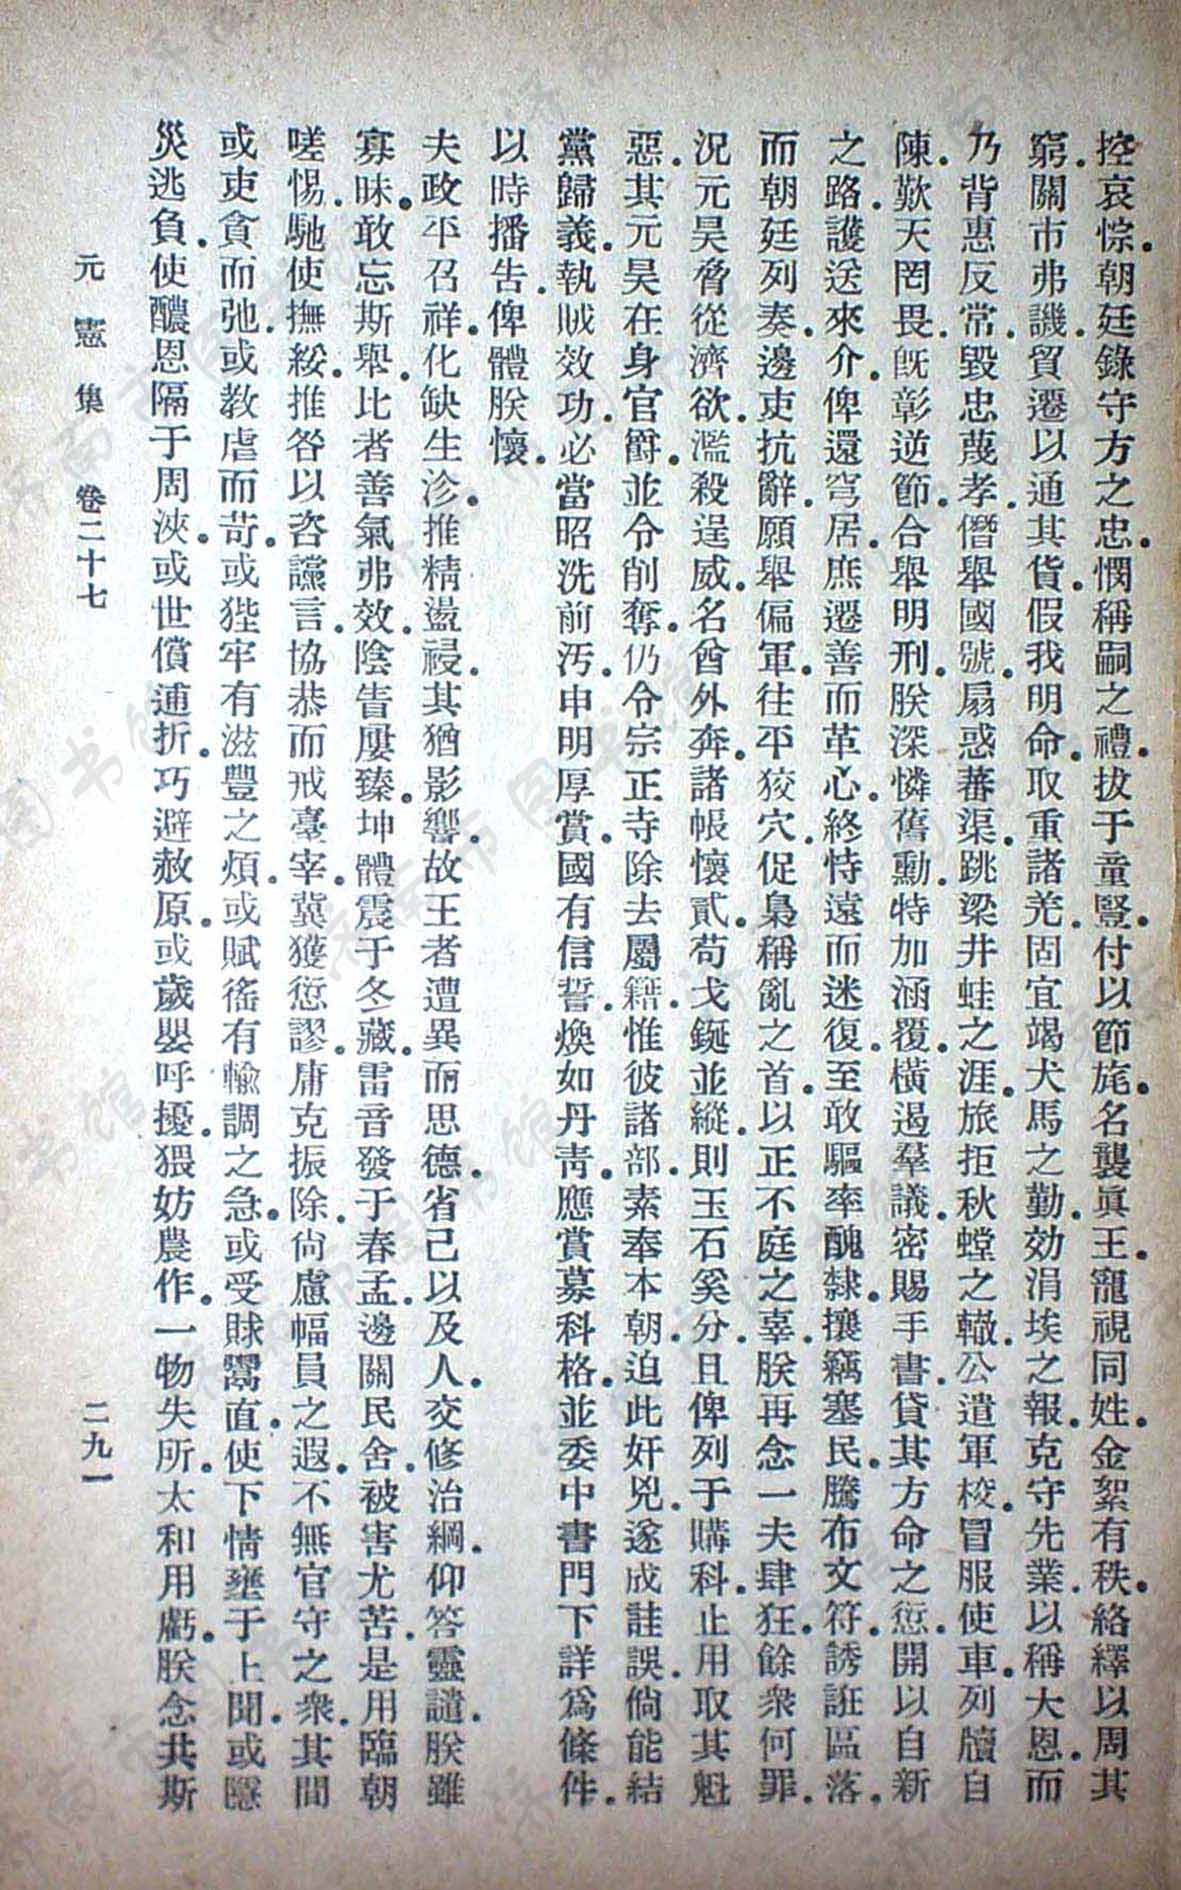 控哀悰。朝廷錄守方之忠。憫稱嗣之禮。拔于童豎。付以節旄。名襲眞王。寵視同姓。金絮有秩。絡繹以周其
窮。關市弗譏。貿遷以通其貨。假我明命。取重諸羌。固宜竭犬馬之勤。効涓埃之報。克守先業。以稱大恩。而
乃背惠反常。毀忠蔑孝。僭舉國號。扇惑蕃渠。跳梁井蛙之涯。旅拒秋螳之轍。公遣軍校。冒服使車。列牘自
陳。歎天罔畏。旣彰逆節。合舉明刑。朕深憐舊勳。特加涵覆。橫遏羣議。密賜手書。貸其方命之愆。開以自新
之路。護送來介。俾還穹居。庶遷善而革心。終恃遠而迷復。至敢驅率醜隸。攘竊塞民。騰布文符。誘誑區落。
而朝廷列奏。邊吏抗辭。願舉偏軍。往平狡穴。促梟稱亂之首。以正不庭之辜。朕再念一夫肆狂。餘衆何罪。
況元昊脅從濟欲。濫殺逞威。名酋外奔。諸帳懷貳。苟戈鋋並縱。則玉石奚分。且俾列于購科。止用取其魁
惡。其元昊在身官爵。並令削奪。仍令宗正寺除去屬籍。惟彼諸部。素奉本朝。迫此奸兇。遂成詿誤。倘能結
黨歸義。執賊效功。必當昭洗前汚。申明厚賞。國有信誓。煥如丹靑。應賞募科格。並委中書門下詳爲條件。
以時播告。俾體朕懷。
夫政平召祥。化缺生沴。推精盪祲。其猶影響。故王者遭異而思德。省己以及人。交修治綱。仰答靈譴。朕雖
寡昧。敢忘斯舉。比者善氣弗效。陰眚屢臻。坤體震于冬藏。雷音發于春孟。邊關民舍。被害尤苦。是用臨朝
嗟惕。馳使撫綏。推咎以咨讜言。協恭而戒臺宰。冀獲愆謬。庸克振除。尙慮幅員之遐。不無官守之衆。其間
或吏貪而弛。或教虐而苛。或狴牢有滋豐之煩。或賦徭有輸調之急。或受賕鬻直。使下情壅于上聞。或隱
災逃負。使醲恩隔于周浹。或世償逋折。巧避赦原。或歲嬰呼擾。猥妨農作。一物失所。太和用虧。朕念共斯
元憲集 卷二十七 二九一